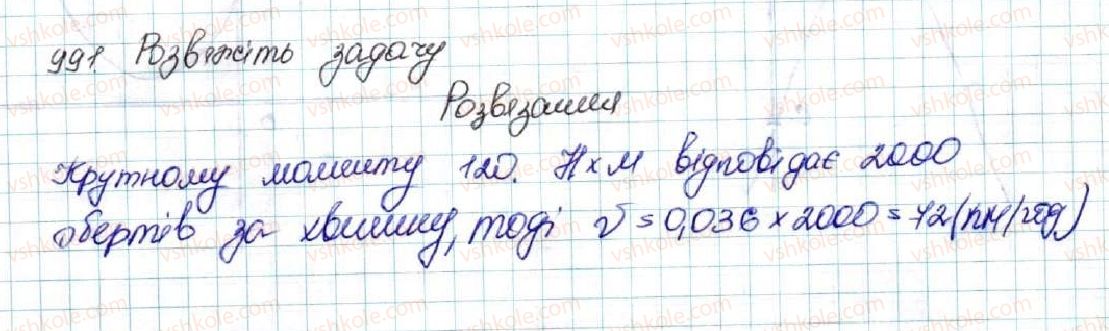 991. Розвяжіть задачу
Розвязання
Крутному моменту 120. Н×м відповідає 2000
обертів за хвилину, тоді v = 0,036 × 2000 = 72 (км/год)